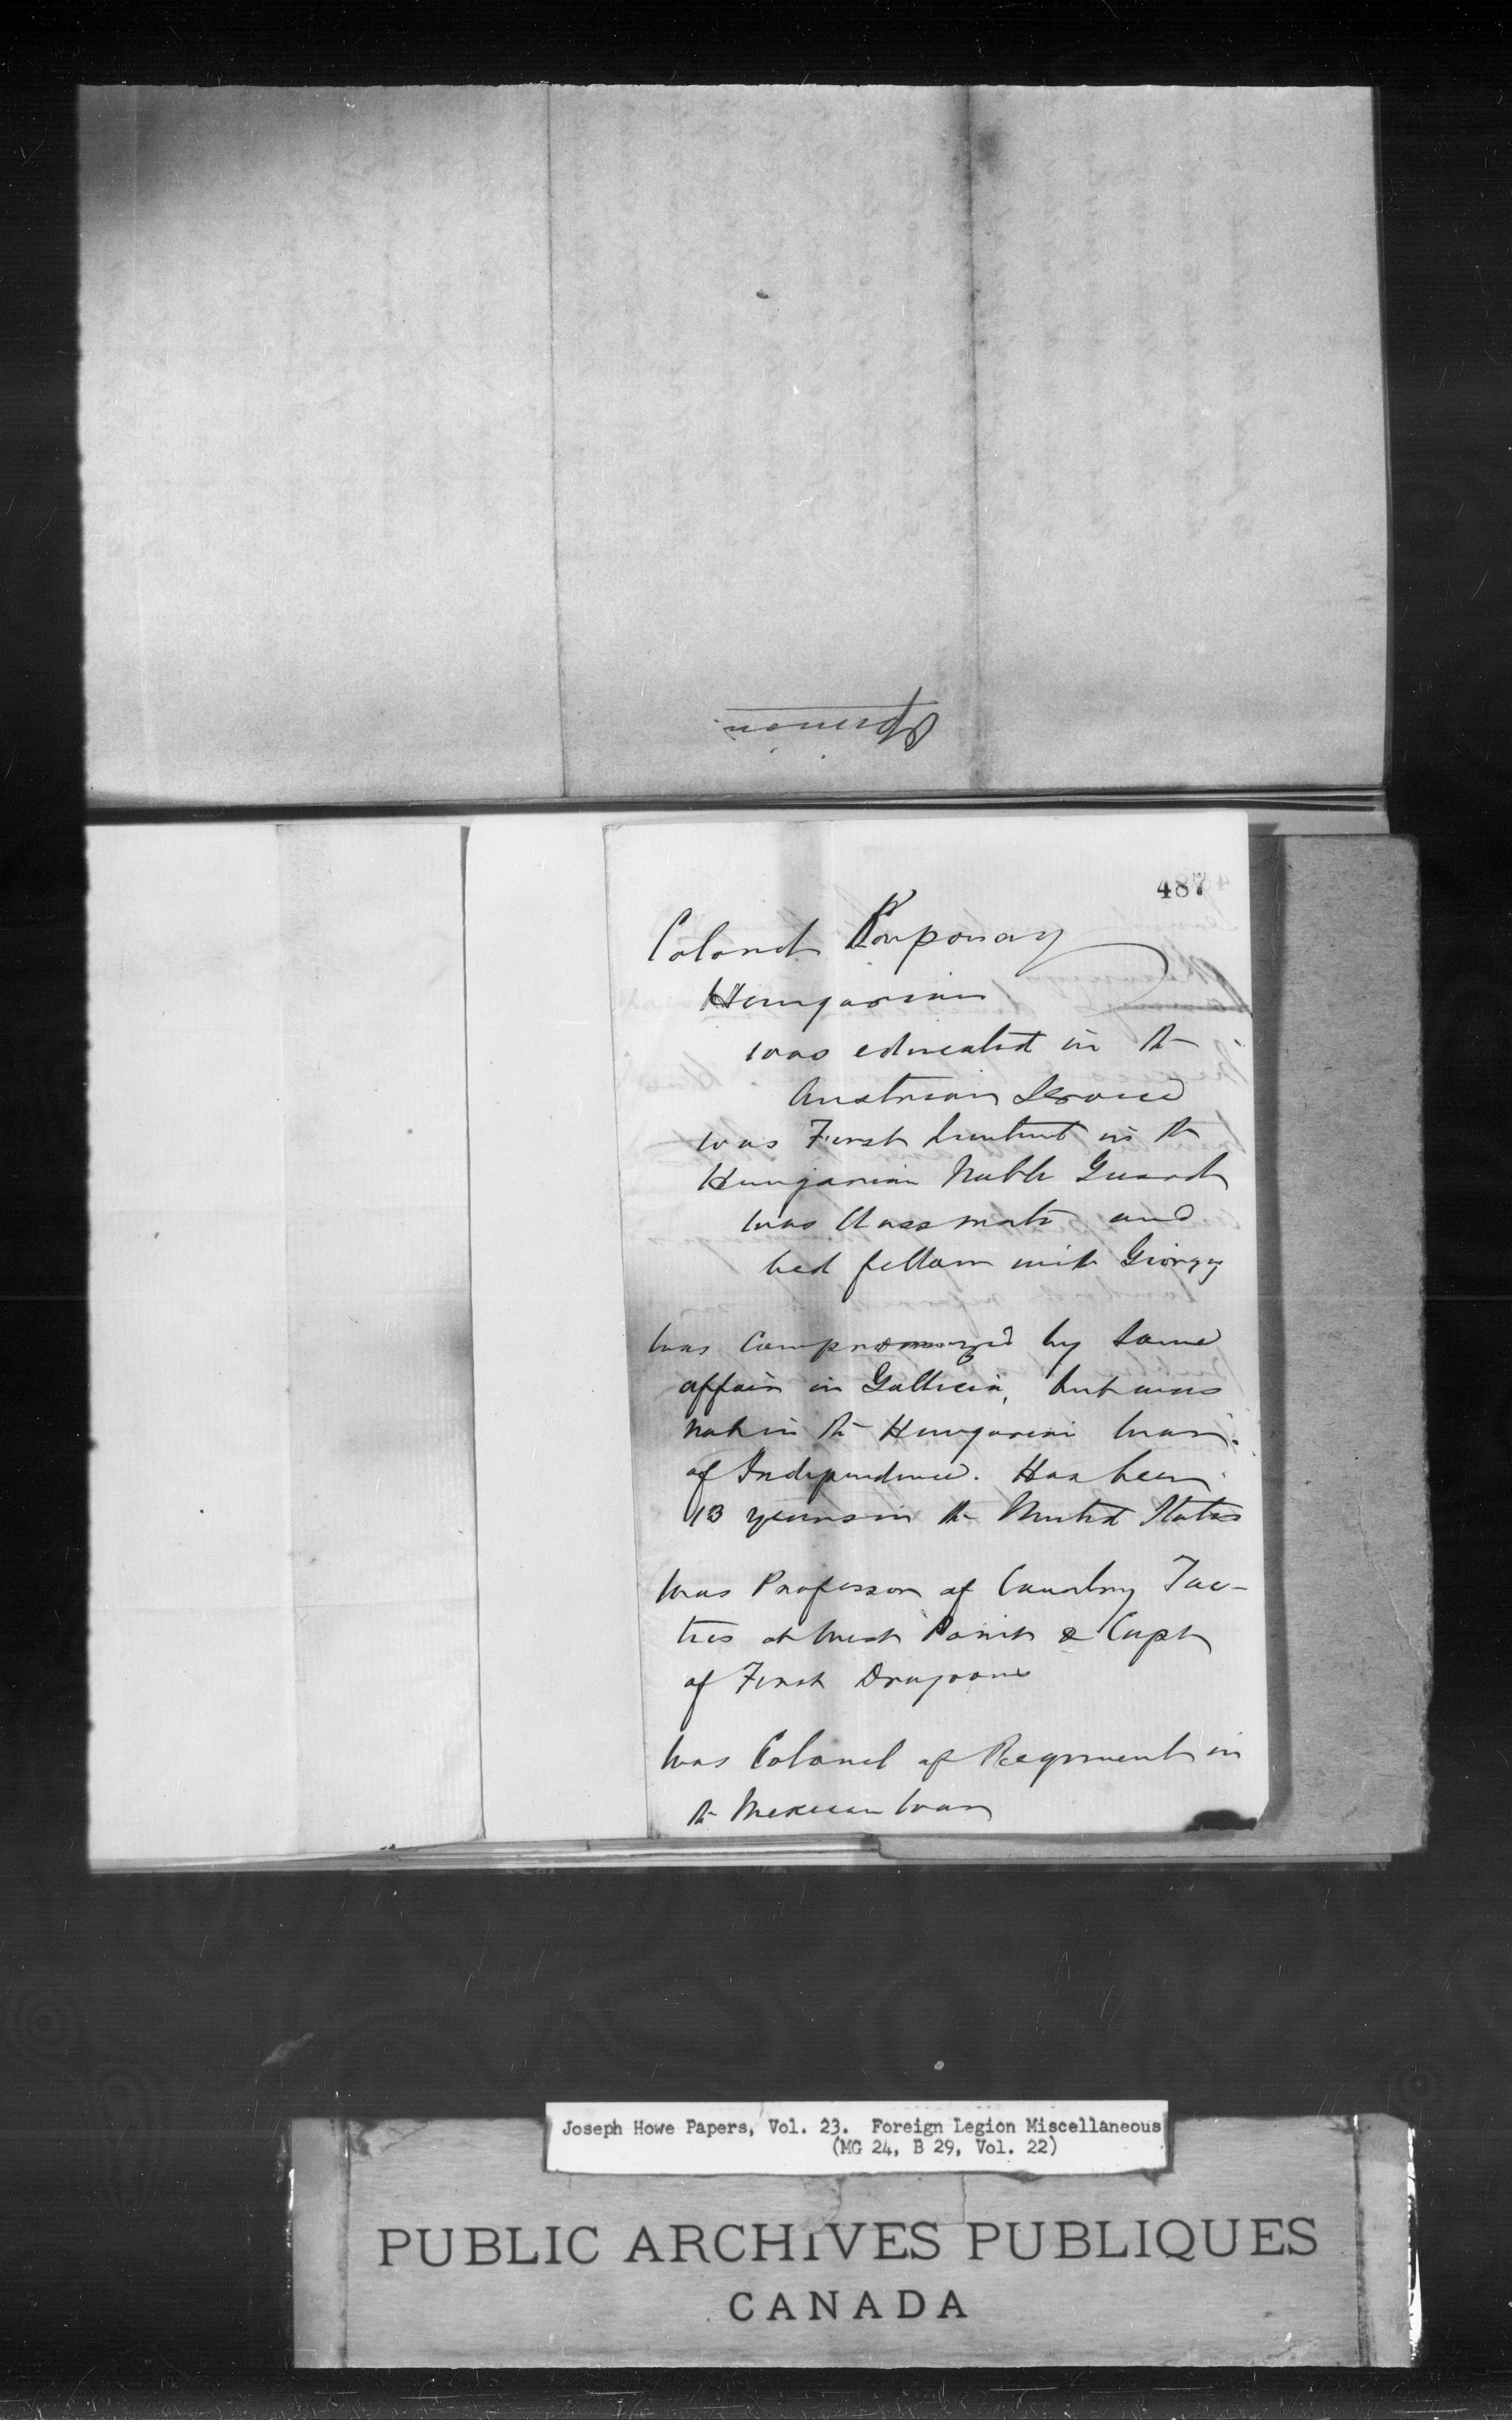 Opinion
487
Colonel Korponay
Hungarian
was educated in the
Austrian Service
was First Lieutent in the
Hungarian Noble Guard
was Classmate and
bed fellow with Giorgy
Was compromized by some
affair in Gallicia, but was
not in the Hungarian War
of Independence. Has been
13 years in the United States
Was Professor of Cavalry Tac-
tics at West Point & Capt
of First Dragoons
Was Colonel of Regiment in
the Mexican War
Joseph Howe Papers, Vol. 23. Foreign Legion Miscellaneous
(MG 24, B 29, Vol. 22)
PUBLIC ARCHIVES PUBLIQUES
CANADA